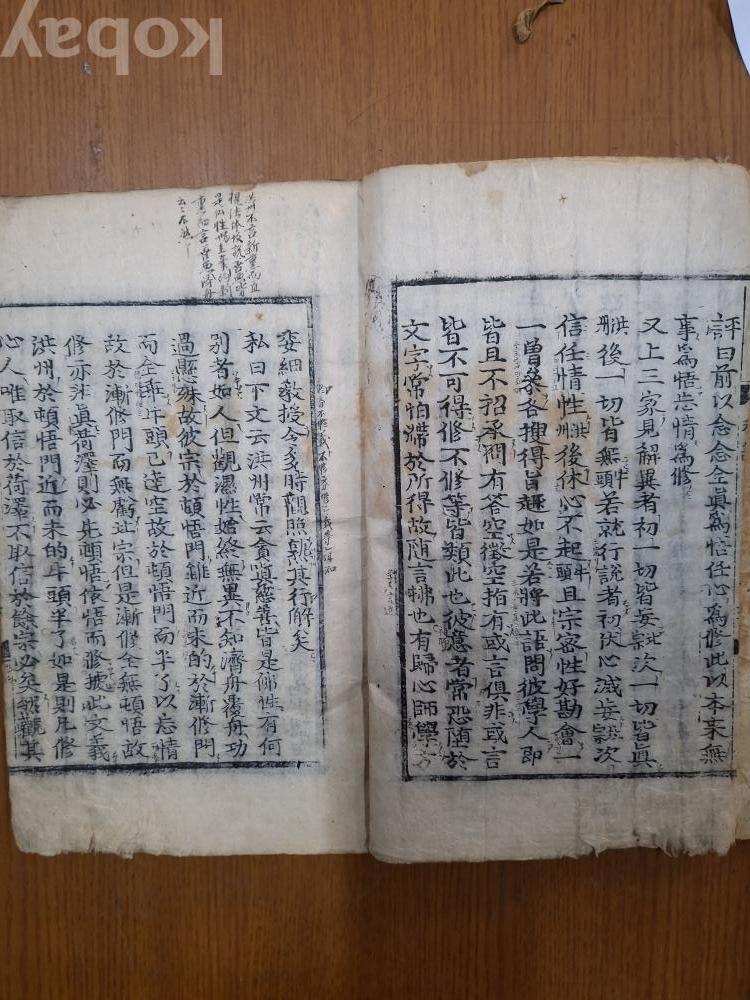 kobay
評曰前以念念全眞爲悟任心爲修此以本來無
事爲悟忘情爲修
又上三家見解異者初一切皆妄北次一切皆眞
洪後一切皆無牛若就行說者初伏心滅妄北次
信任情性洪後休心不起牛且宗密性好勘會一
一曾叅各搜得旨趣如是若將此語問彼學人即
皆且不招承問有答空徵空指有或言俱非或言
皆不可得修不修等皆類此也彼意者常恐墮於
文字常怕滯於所得故随言拂也有歸心師學方
委細敎授令多時觀照熟其行解矣
私曰下文云洪州常云貪嗔慈善皆是佛性有何
別者如人但觀濕性始終無異不知濟舟覆舟功
過懸殊故彼宗於頓悟門雖近而未的於漸修門
而全乖牛頭已達空故於頓悟門而半了以忘情
故於漸修門而無虧北宗但是漸修全無頓悟故
修亦非眞荷澤則必先頓悟依悟而修據此文義
洪州於頓悟門近而未的牛頭半了如是則凡修
心人唯取信於荷澤不取信於餘宗必矣然觀其